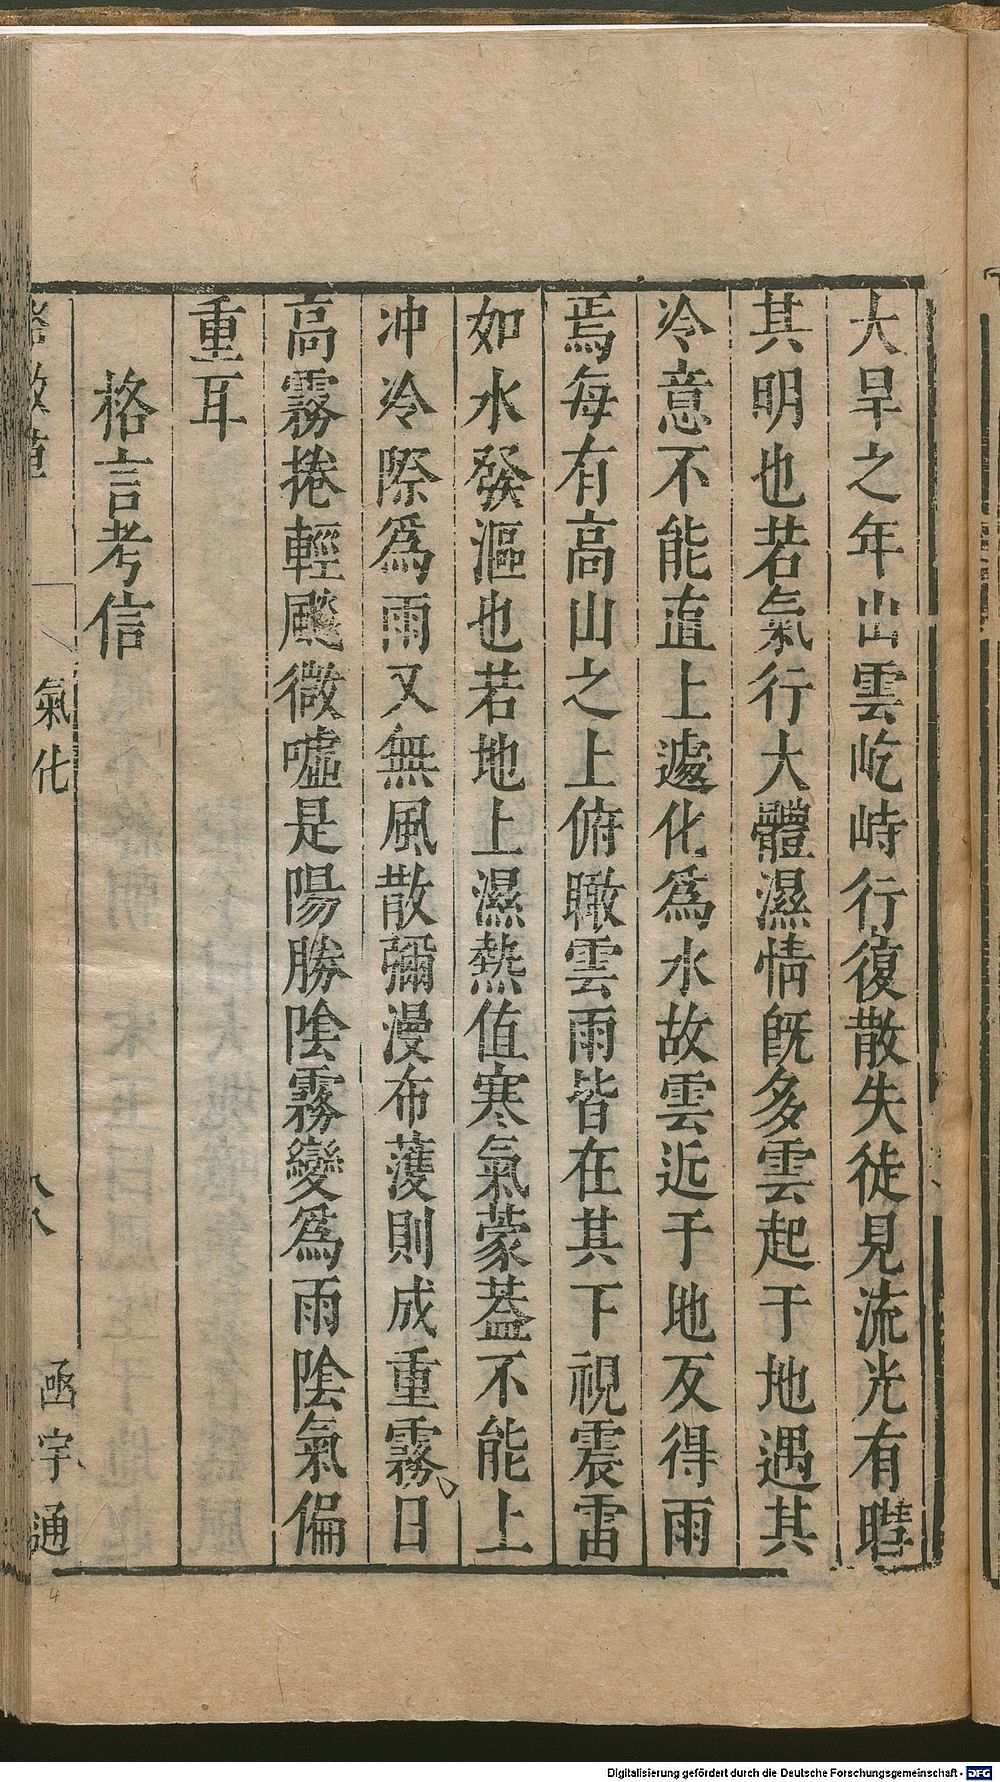 大旱之年出雲屹峙行復散失徒見流光有暳
其明也若氣行大體濕情旣多雲起于地遇其
冷意不能直上遽化爲水故雲近于地反得雨
焉每有高山之上俯瞰雲雨皆在其下視震雷
如水發漚也若地上濕熱值寒氣蒙蓋不能上
冲冷際爲雨又無風散彌漫布濩則成重霧日
高霧捲輕颸微噓是陽勝陰霧變爲雨陰氣偏
重耳
格言考信
格致草
氣化
八八
函宇通
4
Digitalisierung gefördert durch die Deutsche Forschungsgemeinschaft - DFG